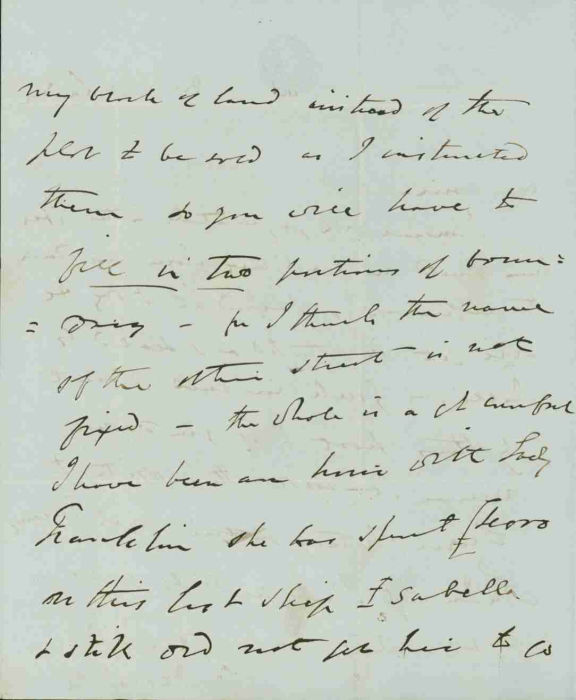 my block of land instead of the
plot to be sold as I instructed
them so you will have to
fill in two portions of boun=
=dary – for I think the name
of the other street is not
fixed – the whole is a
I have been an hour with Lady
Franklin she has spent
on this last ship Isabella
& still did not get her to go